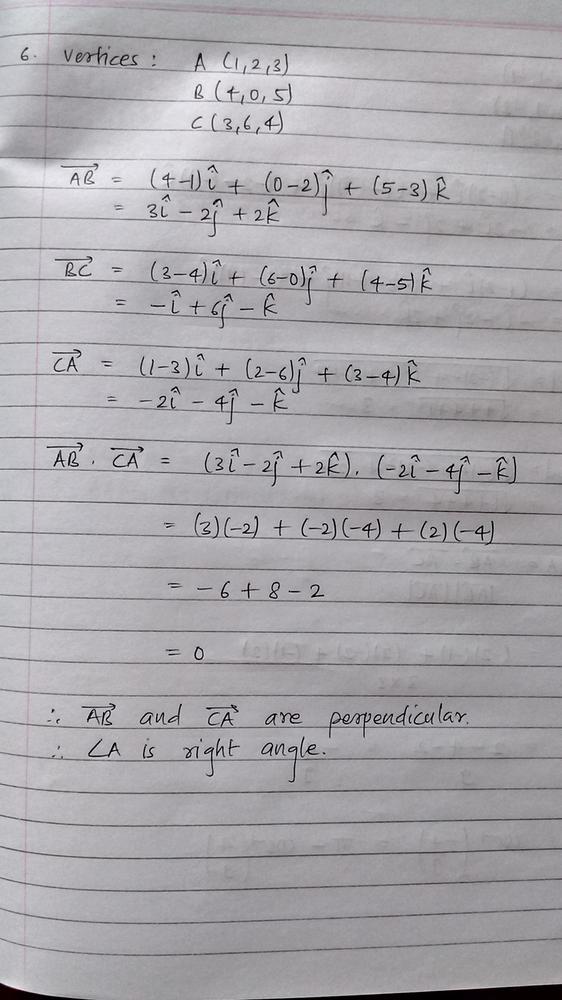 6. Vertices : A (1,2,3)
B (4,0,5)
C (3,6,4)
\overrightarrow{AB} = (4-1)î + (0-2)ĵ + (5-3) k̂
= 3î - 2ĵ + 2k̂
\overrightarrow{BC} = (3-4)î + (6-0)ĵ + (4-5)k̂
= -î + 6ĵ - k̂
\overrightarrow{CA} = (1-3)î + (2-6)ĵ + (3-4) k̂
= -2î - 4ĵ - k̂
\overrightarrow{AB} . \overrightarrow{CA} = (3î - 2ĵ + 2k̂). (-2î - 4ĵ - k̂)
= (3)(-2) + (-2)(-4) + (2)(-4)
= -6 + 8 - 2
= 0
∴ \overrightarrow{AB} and \overrightarrow{CA} are perpendicular.
∴ ∠A is right angle.